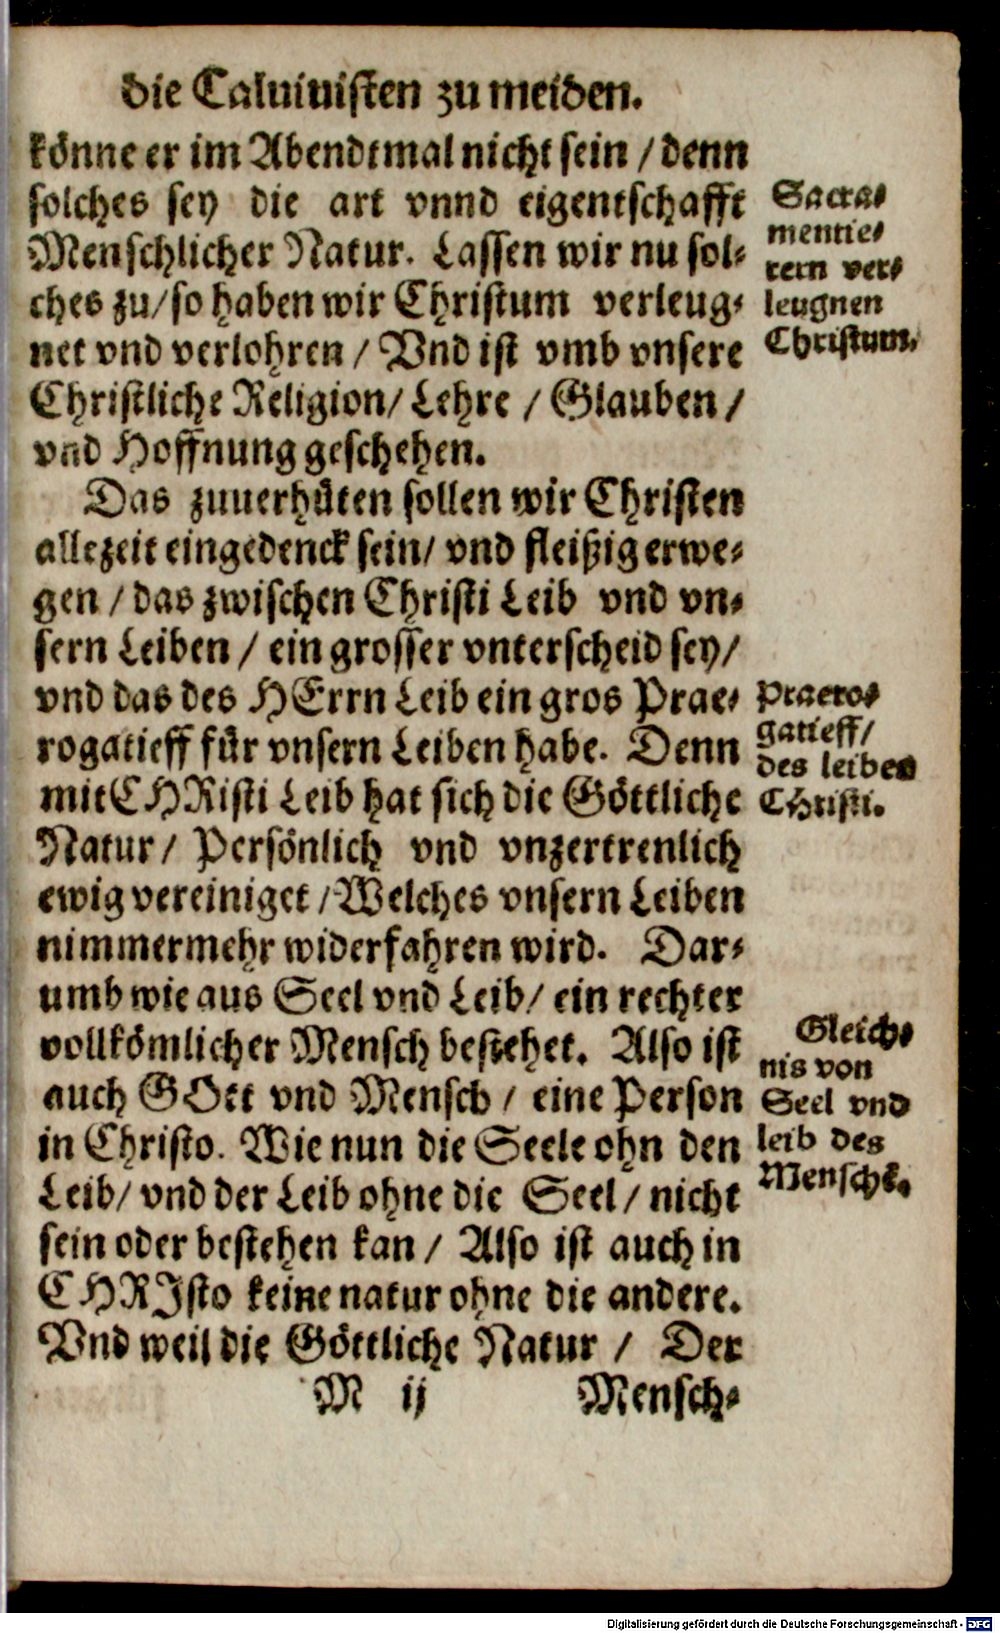 die Caluinisten zu meiden.
könne er im Abendtmal nicht sein / denn
solches sey die art vnnd eigentschafft
Menschlicher Natur. Lassen wir nu sol-
ches zu / so haben wir Christum verleug-
net vnd verlohren / Vnd ist vmb vnsere
Christliche Religion / Lehre / Glauben /
vnd Hoffnung geschehen.
Sacra-
mentie-
rern ver-
leugnen
Christum.
Das zuuerhüten sollen wir Christen
allezeit eingedenck sein / vnd fleißig erwe-
gen / das zwischen Christi Leib vnd vn-
sern Leiben / ein grosser vnterscheid sey /
vnd das des HErrn Leib ein gros Prae-
rogatieff für vnsern Leiben habe. Denn
mit CHRisti Leib hat sich die Göttliche
Natur / Persönlich vnd vnzertrenlich
ewig vereiniget / Welches vnsern Leiben
nimmermehr widerfahren wird. Dar-
umb wie aus Seel vnd Leib / ein rechter
vollkömlicher Mensch bestehet. Also ist
auch GOtt vnd Mensch / eine Person
in Christo. Wie nun die Seele ohn den
Leib / vnd der Leib ohne die Seel / nicht
sein oder bestehen kan / Also ist auch in
CHRJsto keine natur ohne die andere.
Vnd weil die Göttliche Natur / Der
Praero-
gatieff /
des leibes
CHristi.
Gleich-
nis von
Seel vnd
leib des
Menschē.
M ij
Mensch-
Digitalisierung gefördert durch die Deutsche Forschungsgemeinschaft - DFG